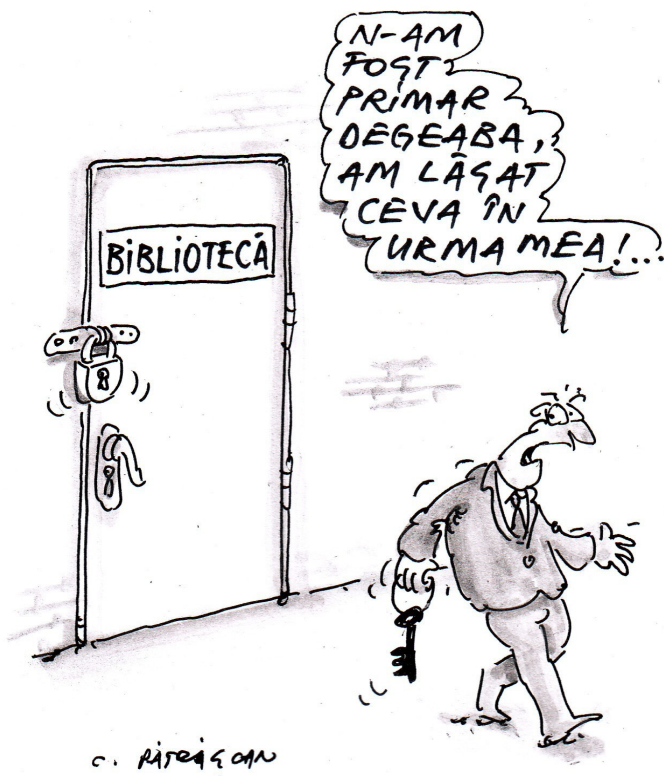 N-AM
FOST
PRIMAR
DEGEABA,
AM LĂSAT
CEVA ÎN
URMA MEA!...
BIBLIOTECĂ
C. PĂTRĂȘCAN